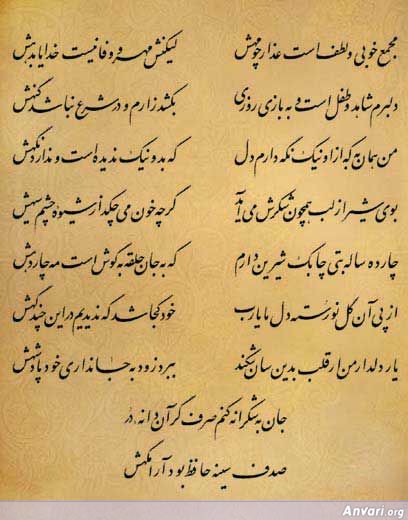 مجمع خوبی و لطف است عذار چو مهش لیکنش مهر و وفا نیست خدایا بدهش
دلبرم شاهد و طفل است و به بازی روزی بکشد زارم و در شرع نباشد گنهش
من همان به که از او نیک نگه دارم دل که بد و نیک ندیده است و ندارد نگهش
بوی شیر از لب همچون شکرش می آید گرچه خون می چکد از شیوه چشم سیهش
چارده ساله بتی چابک شیرین دارم که به جان حلقه به گوش است مه چاردهش
از پی آن گل نورسته دل ما یا رب خود کجا شد که ندیدیم در این چند گهش
یار دلدار من ار قلب بدین سان شکند ببرد زود به جانداری خود پادشهش
جان به شکرانه کنم صرف گر آن دانه در
صدف سینه حافظ بود آرامگهش
Anvari.org